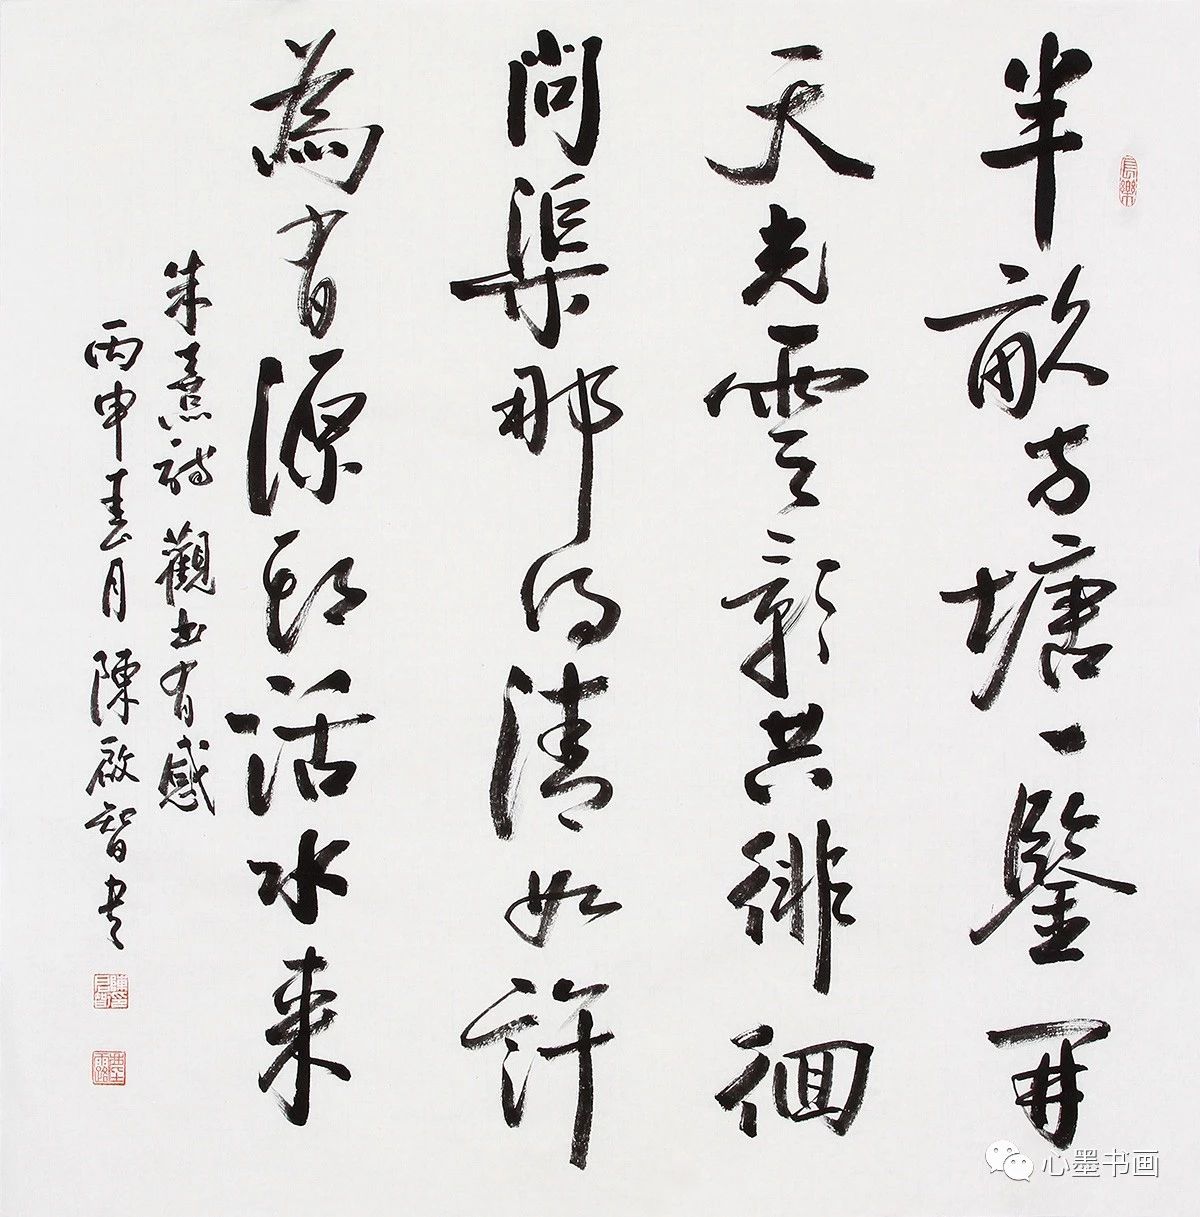 半畝方塘一鑒開
天光雲影共徘徊
問渠那得清如許
為有源頭活水来
朱熹詩觀書有感
丙申春月陳啟智书
長樂
心墨书画